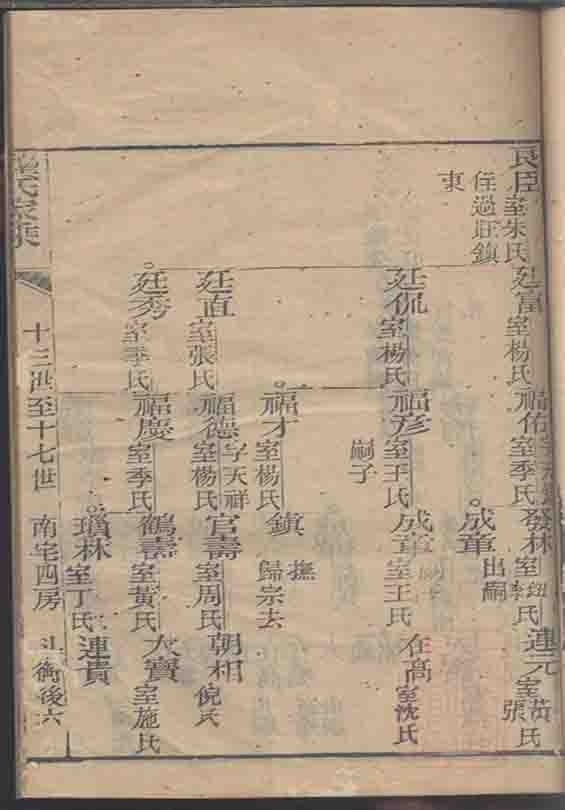 良臣 室朱氏
住過旺鎮
東
廷富 室楊氏
福佑 室季氏
發林 室 氏
連元 室黃張氏
成章 出嗣
廷侃 室楊氏
福彦 室王氏
嗣子
成章 室王氏
在高 室沈氏
福才 室楊氏
鎮 撫
歸宗去
廷直 室張氏
福德 字天祥
室楊氏
官壽 室周氏
朝相 倪氏
廷秀 室季氏
福慶 室季氏
鶴壽 室黃氏
大寶 室施氏
瓊林 室丁氏
連貴
氏家乘
十三世至十七世 南宅四房 後六